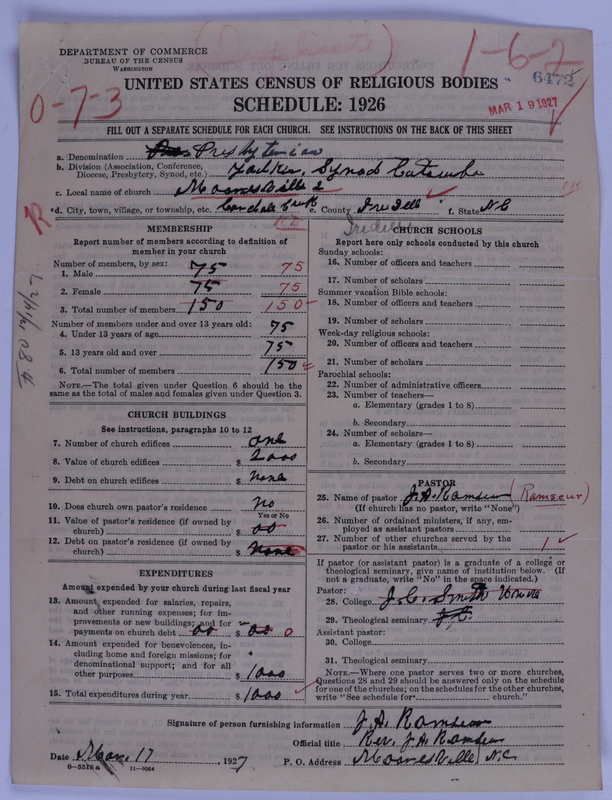 (Duplicate)
DEPARTMENT OF COMMERCE
BUREAU OF THE CENSUS
WASHINGTON
1-6-2
6472
UNITED STATES CENSUS OF RELIGIOUS BODIES
0-7-3
SCHEDULE: 1926
MAR 19 1927
FILL OUT A SEPARATE SCHEDULE FOR EACH CHURCH. SEE INSTRUCTIONS ON THE BACK OF THIS SHEET
a. Denomination Presbyterian
b. Division (Association, Conference, Diocese, Presbytery, Synod, etc.) Yadkin, Synod Catawba
c. Local name of church Mooresville 2
*d. City, town, village, or township, etc. e. County Iredell f. State N C
R
Iredell
#80 12/14/27
MEMBERSHIP
Report number of members according to definition of
member in your church
Number of members, by sex:
1. Male 75 75
2. Female 75 75
3. Total number of members 150 150
Number of members under and over 13 years old:
4. Under 13 years of age 75
5. 13 years old and over 75
6. Total number of members 150
NOTE.—The total given under Question 6 should be
same as the total of males and females given under Question 3.
CHURCH BUILDINGS
See instructions, paragraphs 10 to 12
7. Number of church edifices one
8. Value of church edifices $ 2000
9. Debt on church edifices $ none
10. Does church own pastor's residence no
Yes or No
11. Value of pastor's residence (if owned by
church) $ 00
12. Debt on pastor's residence (if owned by
church) $ none
EXPENDITURES
Amount expended by your church during last fiscal year
13. Amount expended for salaries, repairs,
and other running expenses; for im-
provements or new buildings; and for
payments on church debt 00 $ 00 0
14. Amount expended for benevolences, in-
cluding home and foreign missions; for
denominational support; and for all
other purposes $ 1000
15. Total expenditures during year $ 1000
CHURCH SCHOOLS
Report here only schools conducted by this church
Sunday schools:
16. Number of officers and teachers
17. Number of scholars
Summer vacation Bible schools:
18. Number of officers and teachers
19. Number of scholars
Week-day religious schools:
20. Number of officers and teachers
21. Number of scholars
Parochial schools:
22. Number of administrative officers
23. Number of teachers—
a. Elementary (grades 1 to 8)
b. Secondary
24. Number of scholars—
a. Elementary (grades 1 to 8)
b. Secondary
PASTOR
25. Name of pastor J. A. Ramseur (Ramseur)
(If church has no pastor, write "None")
26. Number of ordained ministers, if any, em-
ployed as assistant pastors
27. Number of other churches served by the
pastor or his assistants 1
If pastor (or assistant pastor) is a graduate of a college or
theological seminary, give name of institution below. (If
not a graduate, write "No" in the space indicated.)
Pastor:
28. College J. C. Smith
29. Theological seminary
Assistant pastor:
30. College
31. Theological seminary
NOTE.—Where one pastor serves two or more churches,
Questions 28 and 29 should be answered only on the schedule
for one of the churches; on the schedules for the other churches,
write "See schedule for church."
Signature of person furnishing information J. A. Ramseur
Official title Rev. J. A. Ramseur
Date Mar. 17, 1927 P. O. Address Mooresville, N. C.
8—5519 a 11—9084